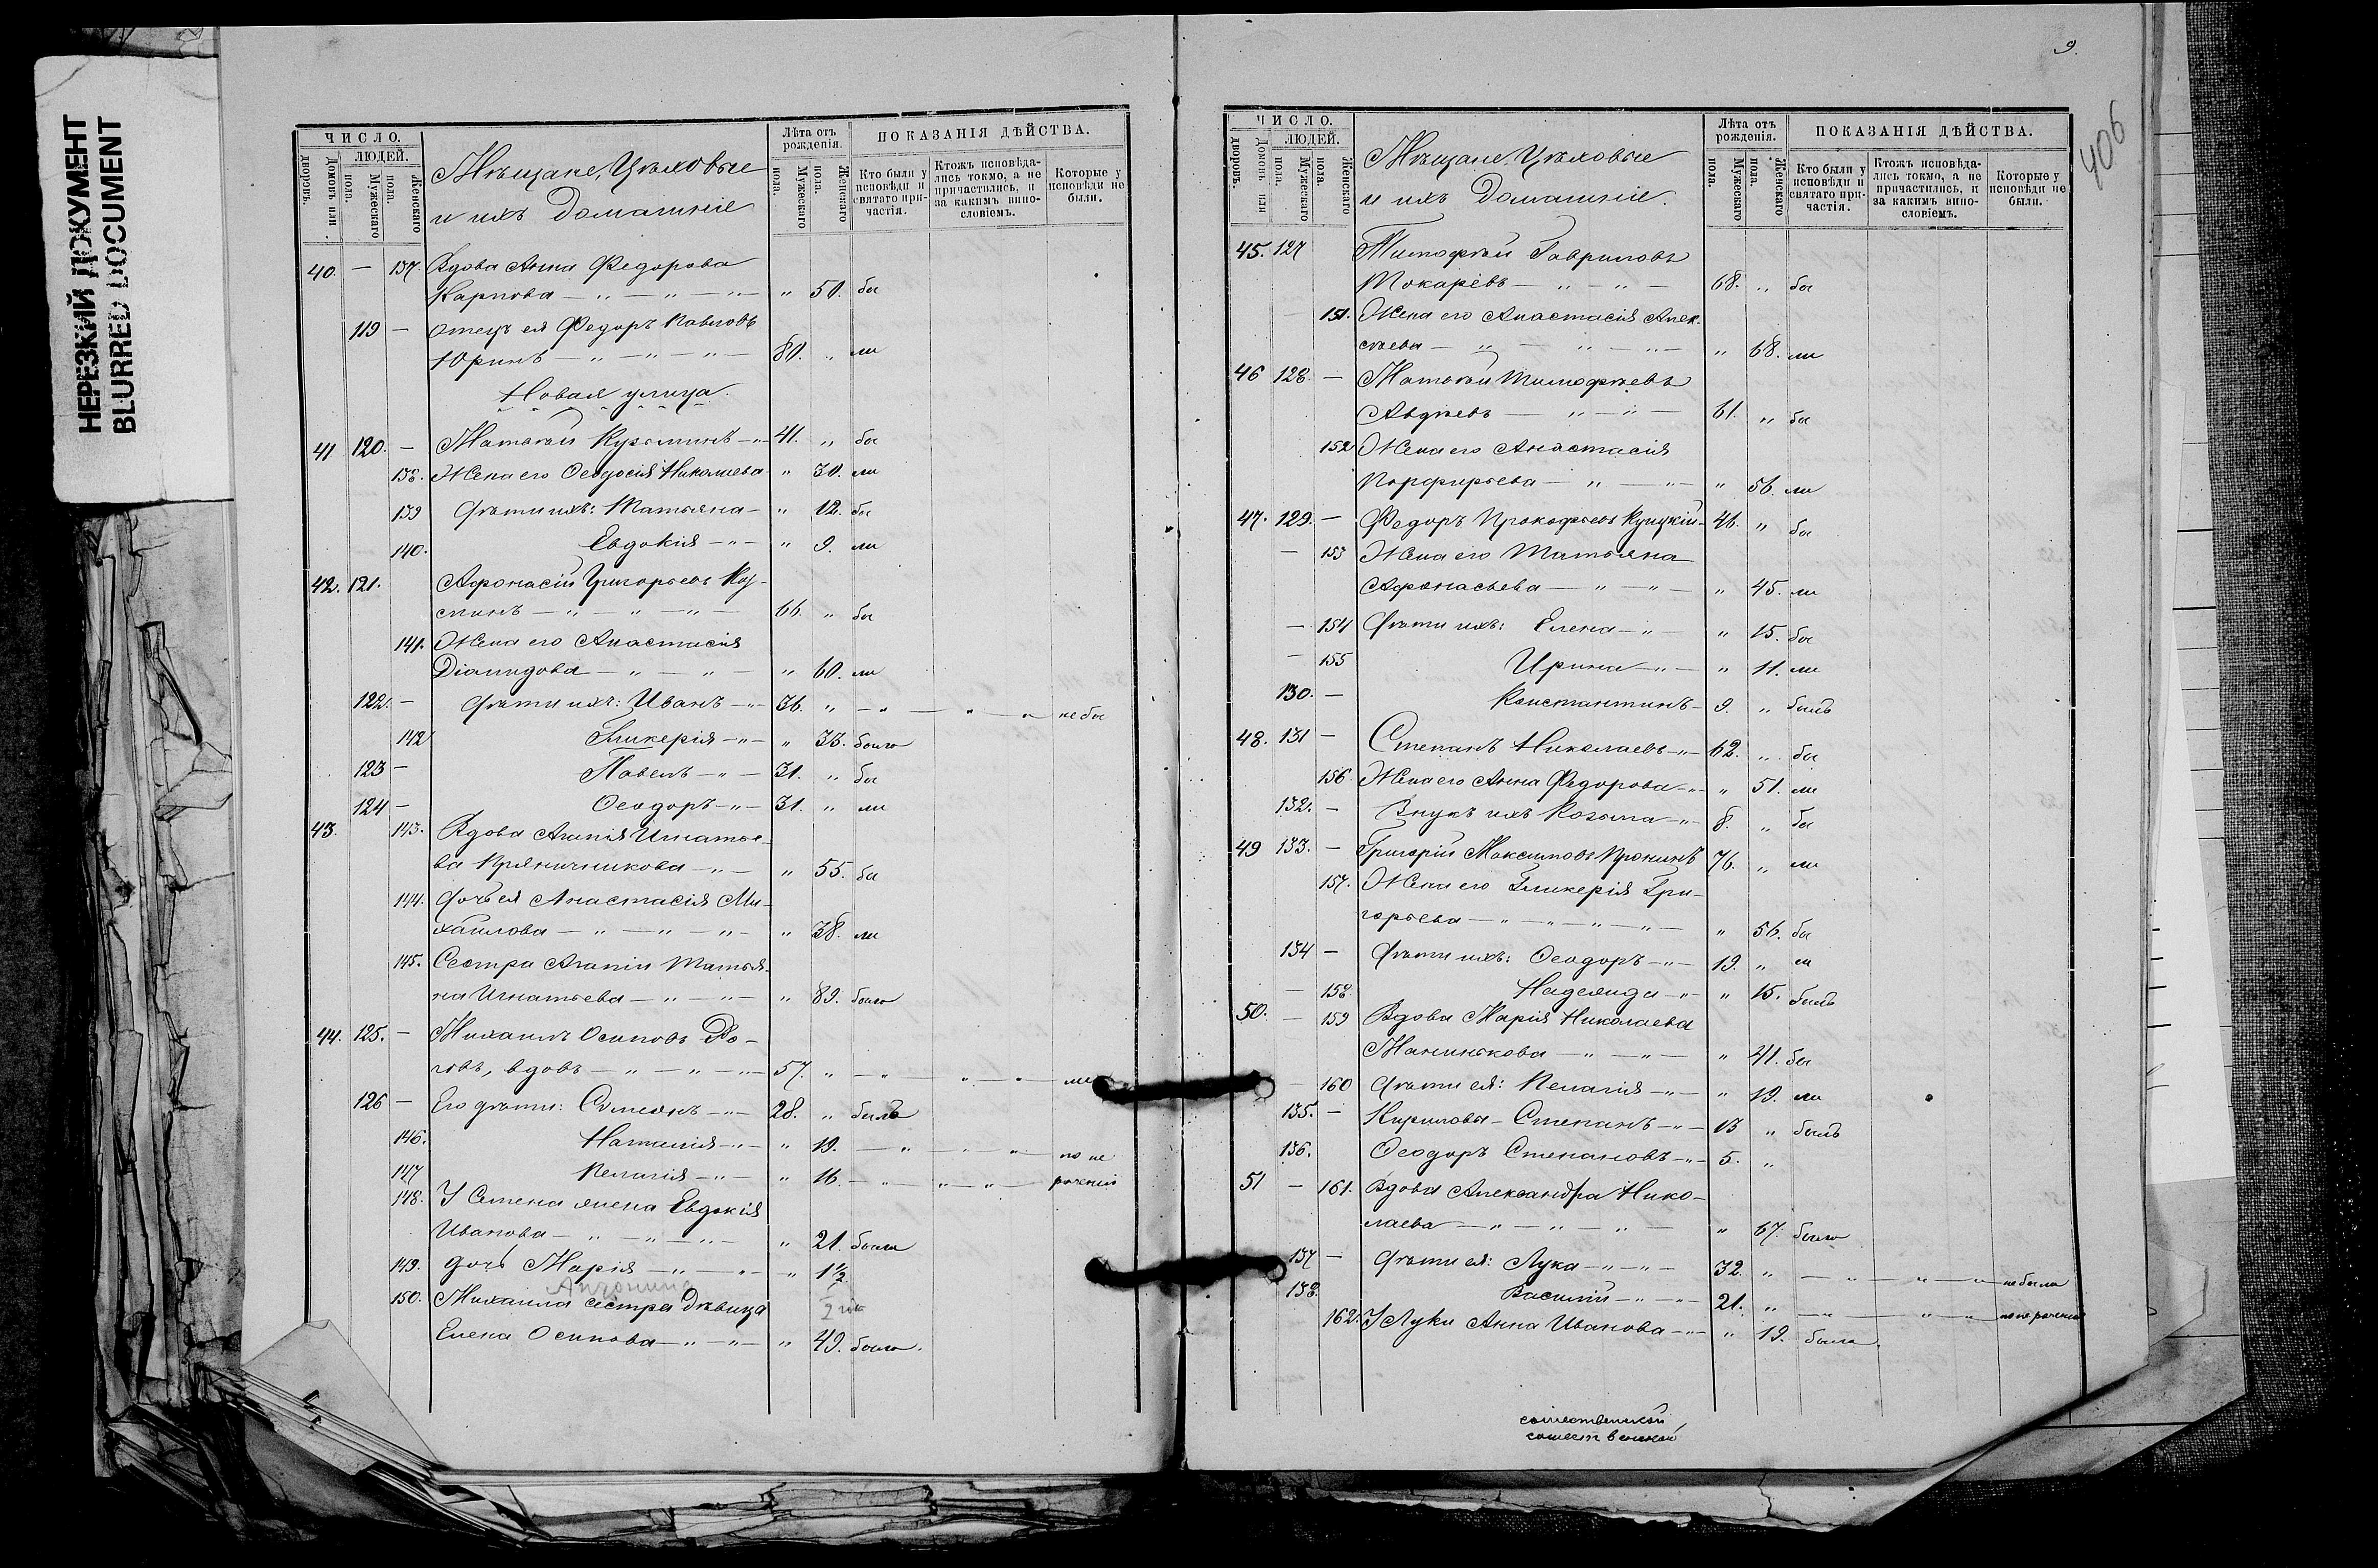 НЕРЕЗКИЙ ДОКУМЕНТ
BLURRED DOCUMENT
ЧИСЛО.
ЛЮДЕЙ.
Домовъ или дворовъ.
Мужескаго пола.
Женскаго пола.
Мѣщане, Цѣховые
и ихъ Домашніе
Лѣта отъ рожденія.
Мужескаго пола.
Женскаго пола.
ПОКАЗАНІЯ ДѢЙСТВА.
Кто были у исповѣди и святаго причастія.
Ктожъ исповѣдались токмо, а не причастились, и за какимъ винословіемъ.
Которые у исповѣди не были.
40. — 137. Вдова Анна Федорова
Карпова — „ — „ — „ — „ 50. бы
119 — отецъ ея Федоръ Павловъ
Юринъ — „ — „ — „ — 80. „ ли
Новая улица.
41 120. — Матвѣй Кузьминъ — „ — 41. „ бы
138. Жена его Ѳеодосія Николаева — „ 30. ли
139 Дѣти ихъ: Татьяна — „ 12. бы
140. Евдокія — „ — „ 9. ли
42. 121. Афонасій Григорьевъ Куз-
минъ — „ — „ — „ — 66. „ бы
141. Жена его Анастасія
Діамидова — „ — „ — „ 60. ли
122. — Дѣти ихъ: Иванъ — „ — 36. „ — „ — „ — „ — не бы
142 Гликерія — „ — „ 33. была
123 — Павелъ — „ — 31. „ бы
124 — Ѳеодоръ — „ — 31. „ ли
43. 143. Вдова Агапія Игнатье-
ва Пряничникова — „ — „ 55. бы
144. Дочь ея Анастасія Ми-
хайлова — „ — „ — „ — „ 38. ли
145. Сестра Агапіи Татья-
на Игнатьева — „ — „ — „ 89. была
44. 125. — Михаилъ Осиповъ
вдовъ — „ — „ — „ — 57. „ — „ — „ — „ — ли
126 — Его дѣти: Симеонъ — „ — 28. „ былъ
146. Наталія — „ — „ 19. — „ — „ — „ — по не
147 Пелагія — „ — „ 16. — „ — „ — „ — раченію
148. У Семена жена Евдокія
Иванова — „ — „ — „ — „ 21. была
149. дочь Марія — „ — „ — „ 1½
Антонина
150. Михаила сестра дѣвица
Елена Осипова — „ — „ — „ 49. была.
9.
406
ЧИСЛО.
ЛЮДЕЙ.
Домовъ или дворовъ.
Мужескаго пола.
Женскаго пола.
Мѣщане, Цѣховые
и ихъ Домашніе.
Лѣта отъ рожденія.
Мужескаго пола.
Женскаго пола.
ПОКАЗАНІЯ ДѢЙСТВА.
Кто были у исповѣди и святаго причастія.
Ктожъ исповѣдались токмо, а не причастились, и за какимъ винословіемъ.
Которые у исповѣди не были.
45. 127 Тимофѣй Гавриловъ
Токарёвъ — „ — „ — 68. „ бы
151. Жена его Анастасія Алек-
сѣева — „ — „ — „ — „ 68. ли
46 128. — Матвѣй Тимофѣевъ
Авдѣевъ — „ — „ — 61. „ бы
152 Жена его Анастасія
Порфирьева — „ — „ — „ 56. ли
47. 129. — Федоръ Прокофьевъ Купцкій — 46. „ бы
— 153 Жена его Татьяна
Афонасьева — „ — „ — „ 45. ли
— 154 Дѣти ихъ: Елена — „ — „ 15. бы
— 155 Ирина — „ — „ 11. ли
130. — Константинъ — 9. „ былъ
48. 131 — Степанъ Николаевъ — „ — 62. „ бы
156. Жена его Анна Федорова — „ — „ 51. ли
132. — Внукъ ихъ Козьма — „ — 8. „ бы
49 133. — Григорій Максимовъ Пронинъ 76. „ ли
157. Жена его Гликерія Гри-
горьева — „ — „ — „ — „ — „ 56. бы
134 — Дѣти ихъ: Ѳеодоръ — „ — 19. „ ли
— 158. Надежда — „ — „ 15. былъ
50. — 159 Вдова Марія Николаева
Манинькова — „ — „ — „ 41. бы
— 160 Дѣти ея: Пелагія — „ — „ 19. ли
135. — Кириловы — Степанъ — „ — 13 „ былъ
136. Ѳеодоръ Степановъ — „ — 5. „
51 — 161. Вдова Александра Нико-
лаева — „ — „ — „ — „ 67. была
137 — Дѣти ея: Лука — „ — „ — 32. „ — „ — „ — „ — не были
138. Василій — „ — „ — 21. „ — „ — „ — „ — по нераченію
162. У Луки Анна Иванова — „ — „ 19. была.